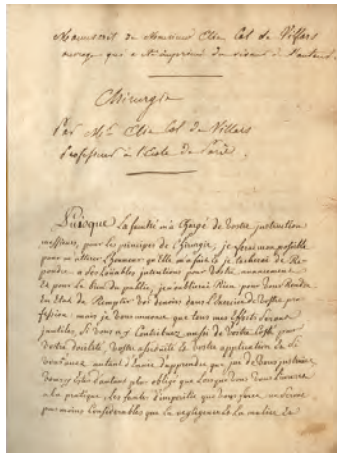 Manuscrit de Monsieur Elie Col de Villars
ouvrage qui a été imprimé du vivant de l'auteur.
Chirurgie
Par Mr. Elie Col de Villars
Professeur à l'Ecole de Paris.
Puisque la faculté m'a Chargé de Vostre instruction
messieurs, pour les principes de Chirurgie, je ferai mon possible
pour m'attirer l'honneur qu'Elle m'a fait et je tacherai de Re-
pondre a ses louables intentions pour Vostre avancement
Et pour le bien du public, je n'oublierai Rien pour Vous Rendre
En Etat de Remplir Vos devoirs dans l'exercice de Vostre pro-
fession mais je Vous annonce que tous mes Efforts Seront
inutiles, Si Vous n'y Contribuez aussi de Votre Costé, par
Votre docilité, Vostre assiduité et Vostre application
autant d'apprendre que de Vous instruire
Vous y Etes d'autant plus obligé que Lorsque Vous Vous
a la pratique, les fautes d'imperitie que Vous ferez ne Seront
pas moins Considerables que la negligence La matiere En